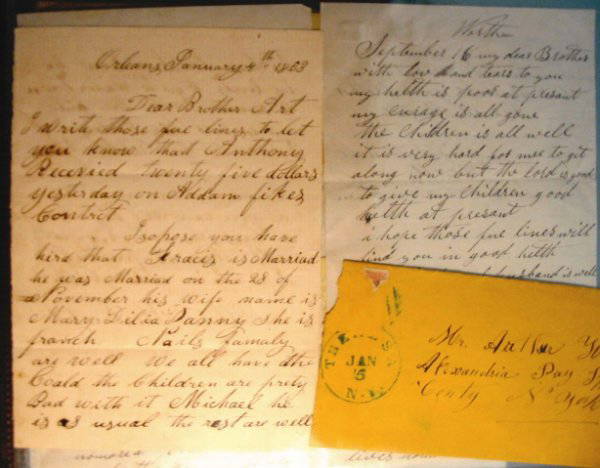 Orleans, January 4th 1863
Dear Brother Art
I write those fue lines to let
you know that Anthony
Receivied twenty five dollars
yesterday on Addam fikes
Contrct
I sopose you have
hird that is Marriad
he was Marriad on the 28 of
November his wife name is
Mary Danny she is
franch famaly
are well we all have the
Coald the Children are prety
Bad with it Michael he
is as usual the rest are well
September 16 my dear Brother
with low hand tears to you
my helth is poor at presant
my curage is all gone
the children is all well
it is very hard for mee to git
along now but the lord is good
to give my children good
helth at presant
i hope those fue lines will
find you in good helth
husband is well
THE
JAN
5
N.Y.
Mr. Arthur
Alexandria Bay
County N York